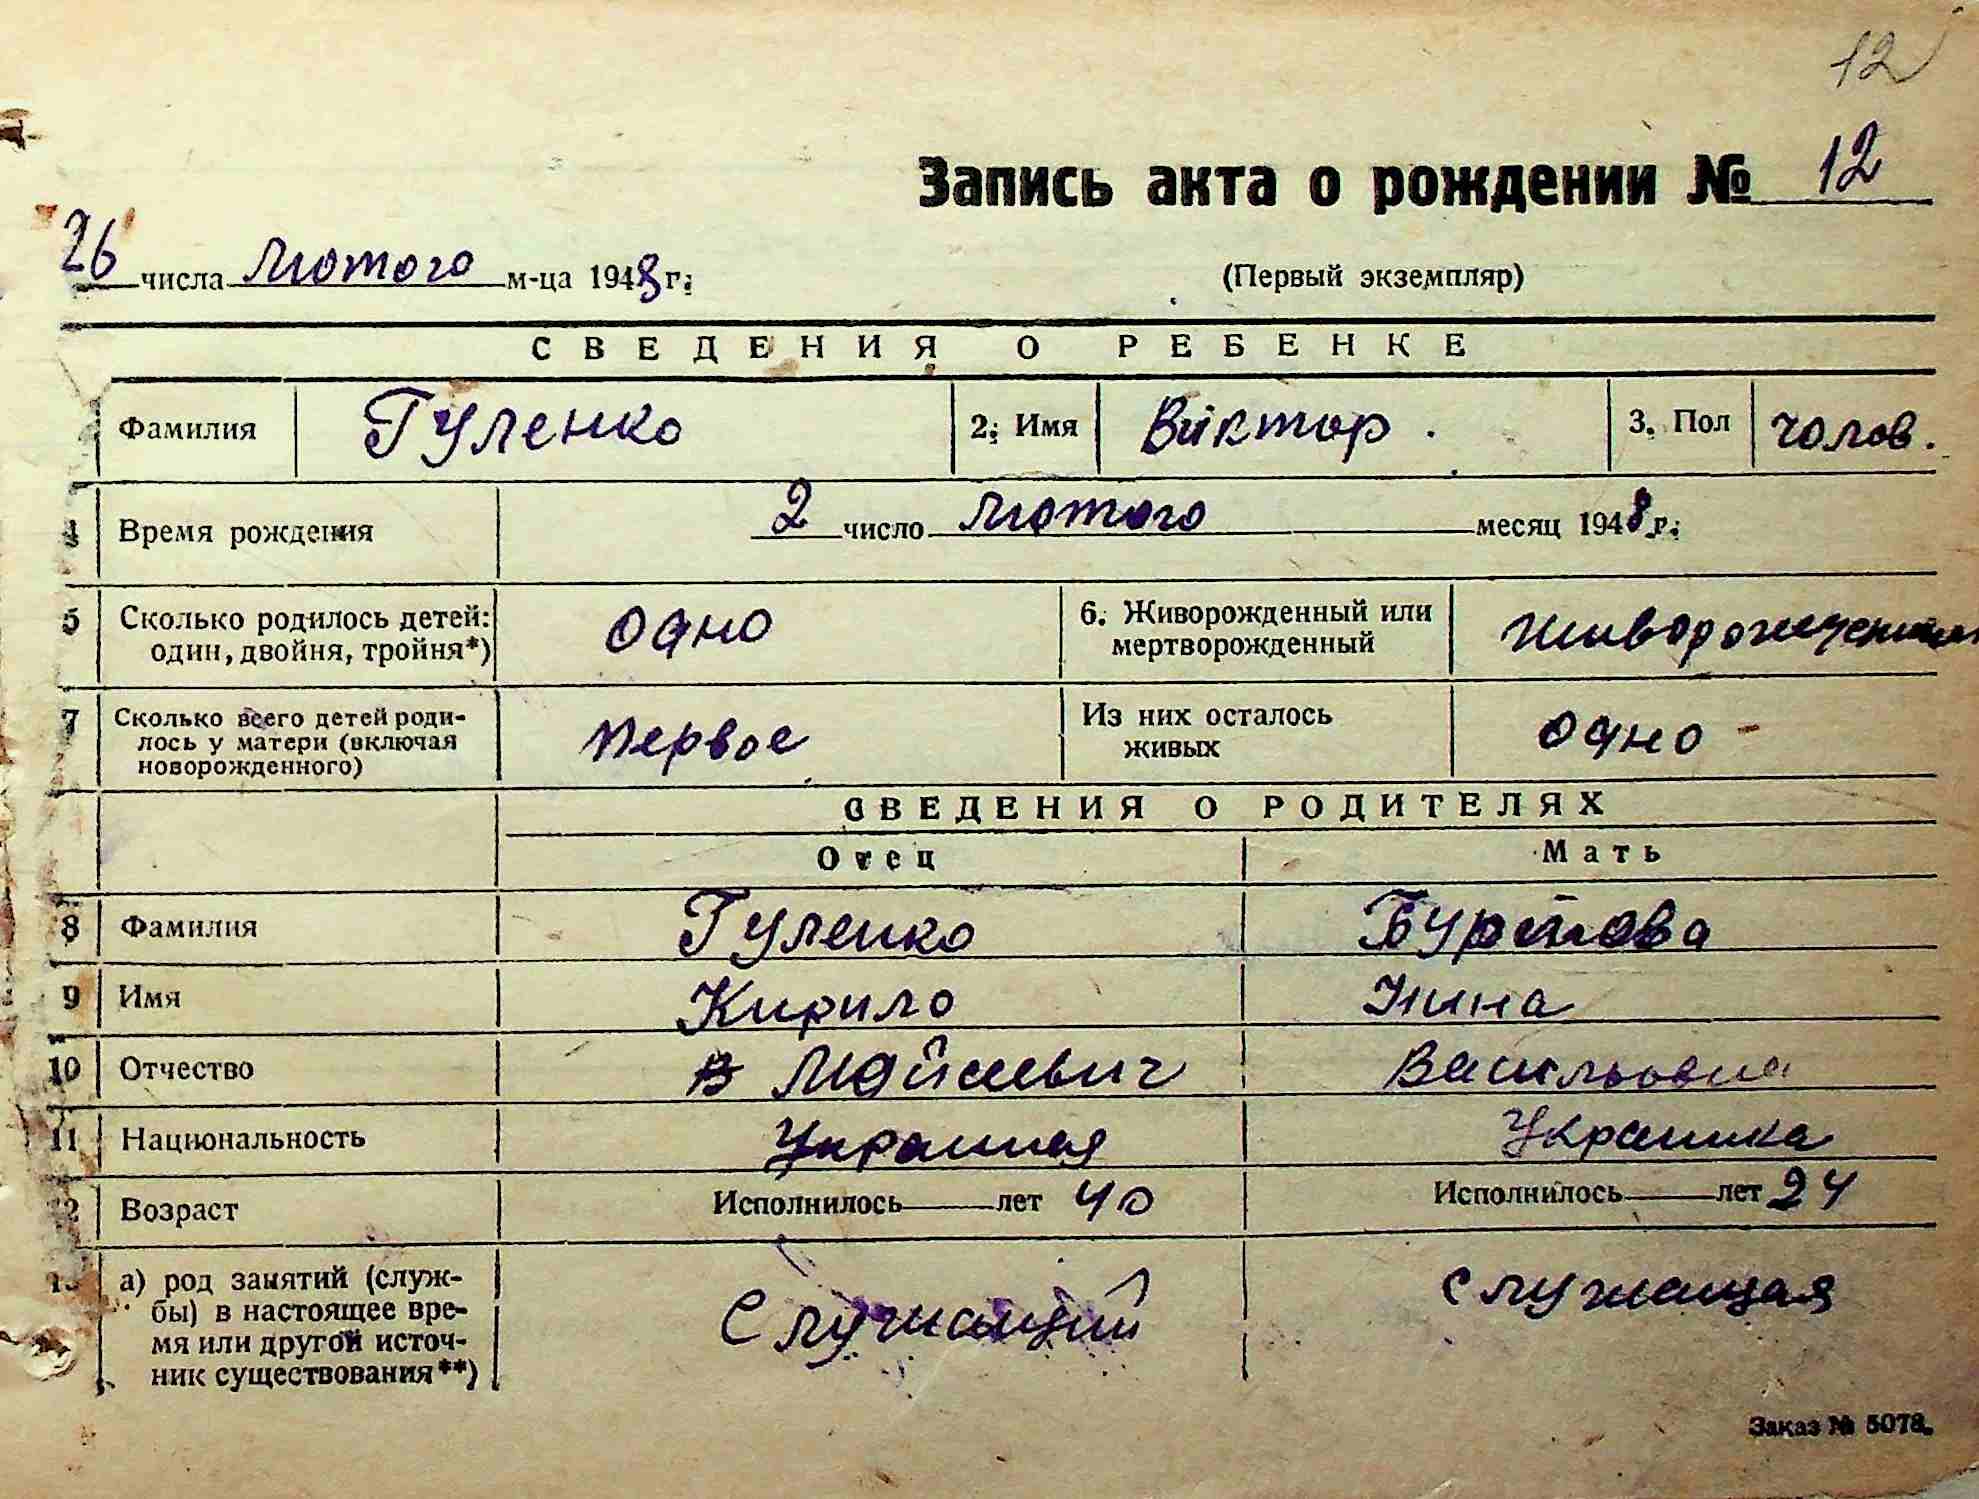 12
Запись акта о рождении № 12
26 числа Лютого м-ца 1948 г.
(Первый экземпляр)
СВЕДЕНИЯ О РЕБЕНКЕ
Фамилия Гуленко 2. Имя Віктор. 3. Пол чолов.
4 Время рождения 2 число Лютого месяц 1948 г.
5 Сколько родилось детей: одно 6. Живорожденный или
один, двойня, тройня*) мертворожденный
7 Сколько всего детей роди- первое Из них осталось одно
лось у матери (включая живых
новорожденного)
СВЕДЕНИЯ О РОДИТЕЛЯХ
Отец Мать
8 Фамилия Гуленко
9 Имя Кирило Нина
10 Отчество Мойсеевич Васильовна
11 Национальность Украинка
12 Возраст Исполнилось лет 40 Исполнилось лет 24
13 а) род занятий (служ- Служащий Служащая
бы) в настоящее вре-
мя или другой источ-
ник существования**)
Заказ № 5078.